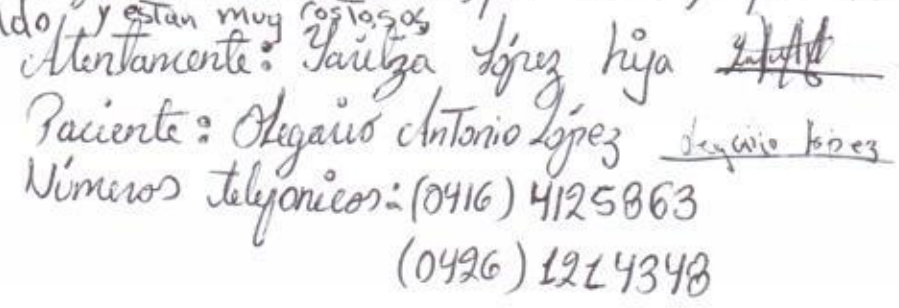 y están muy costosos
Atentamente: Yaritza López hija
Paciente: Olegario Antonio López
Números telefonicos: (0416) 4125863
(0426) 1214348